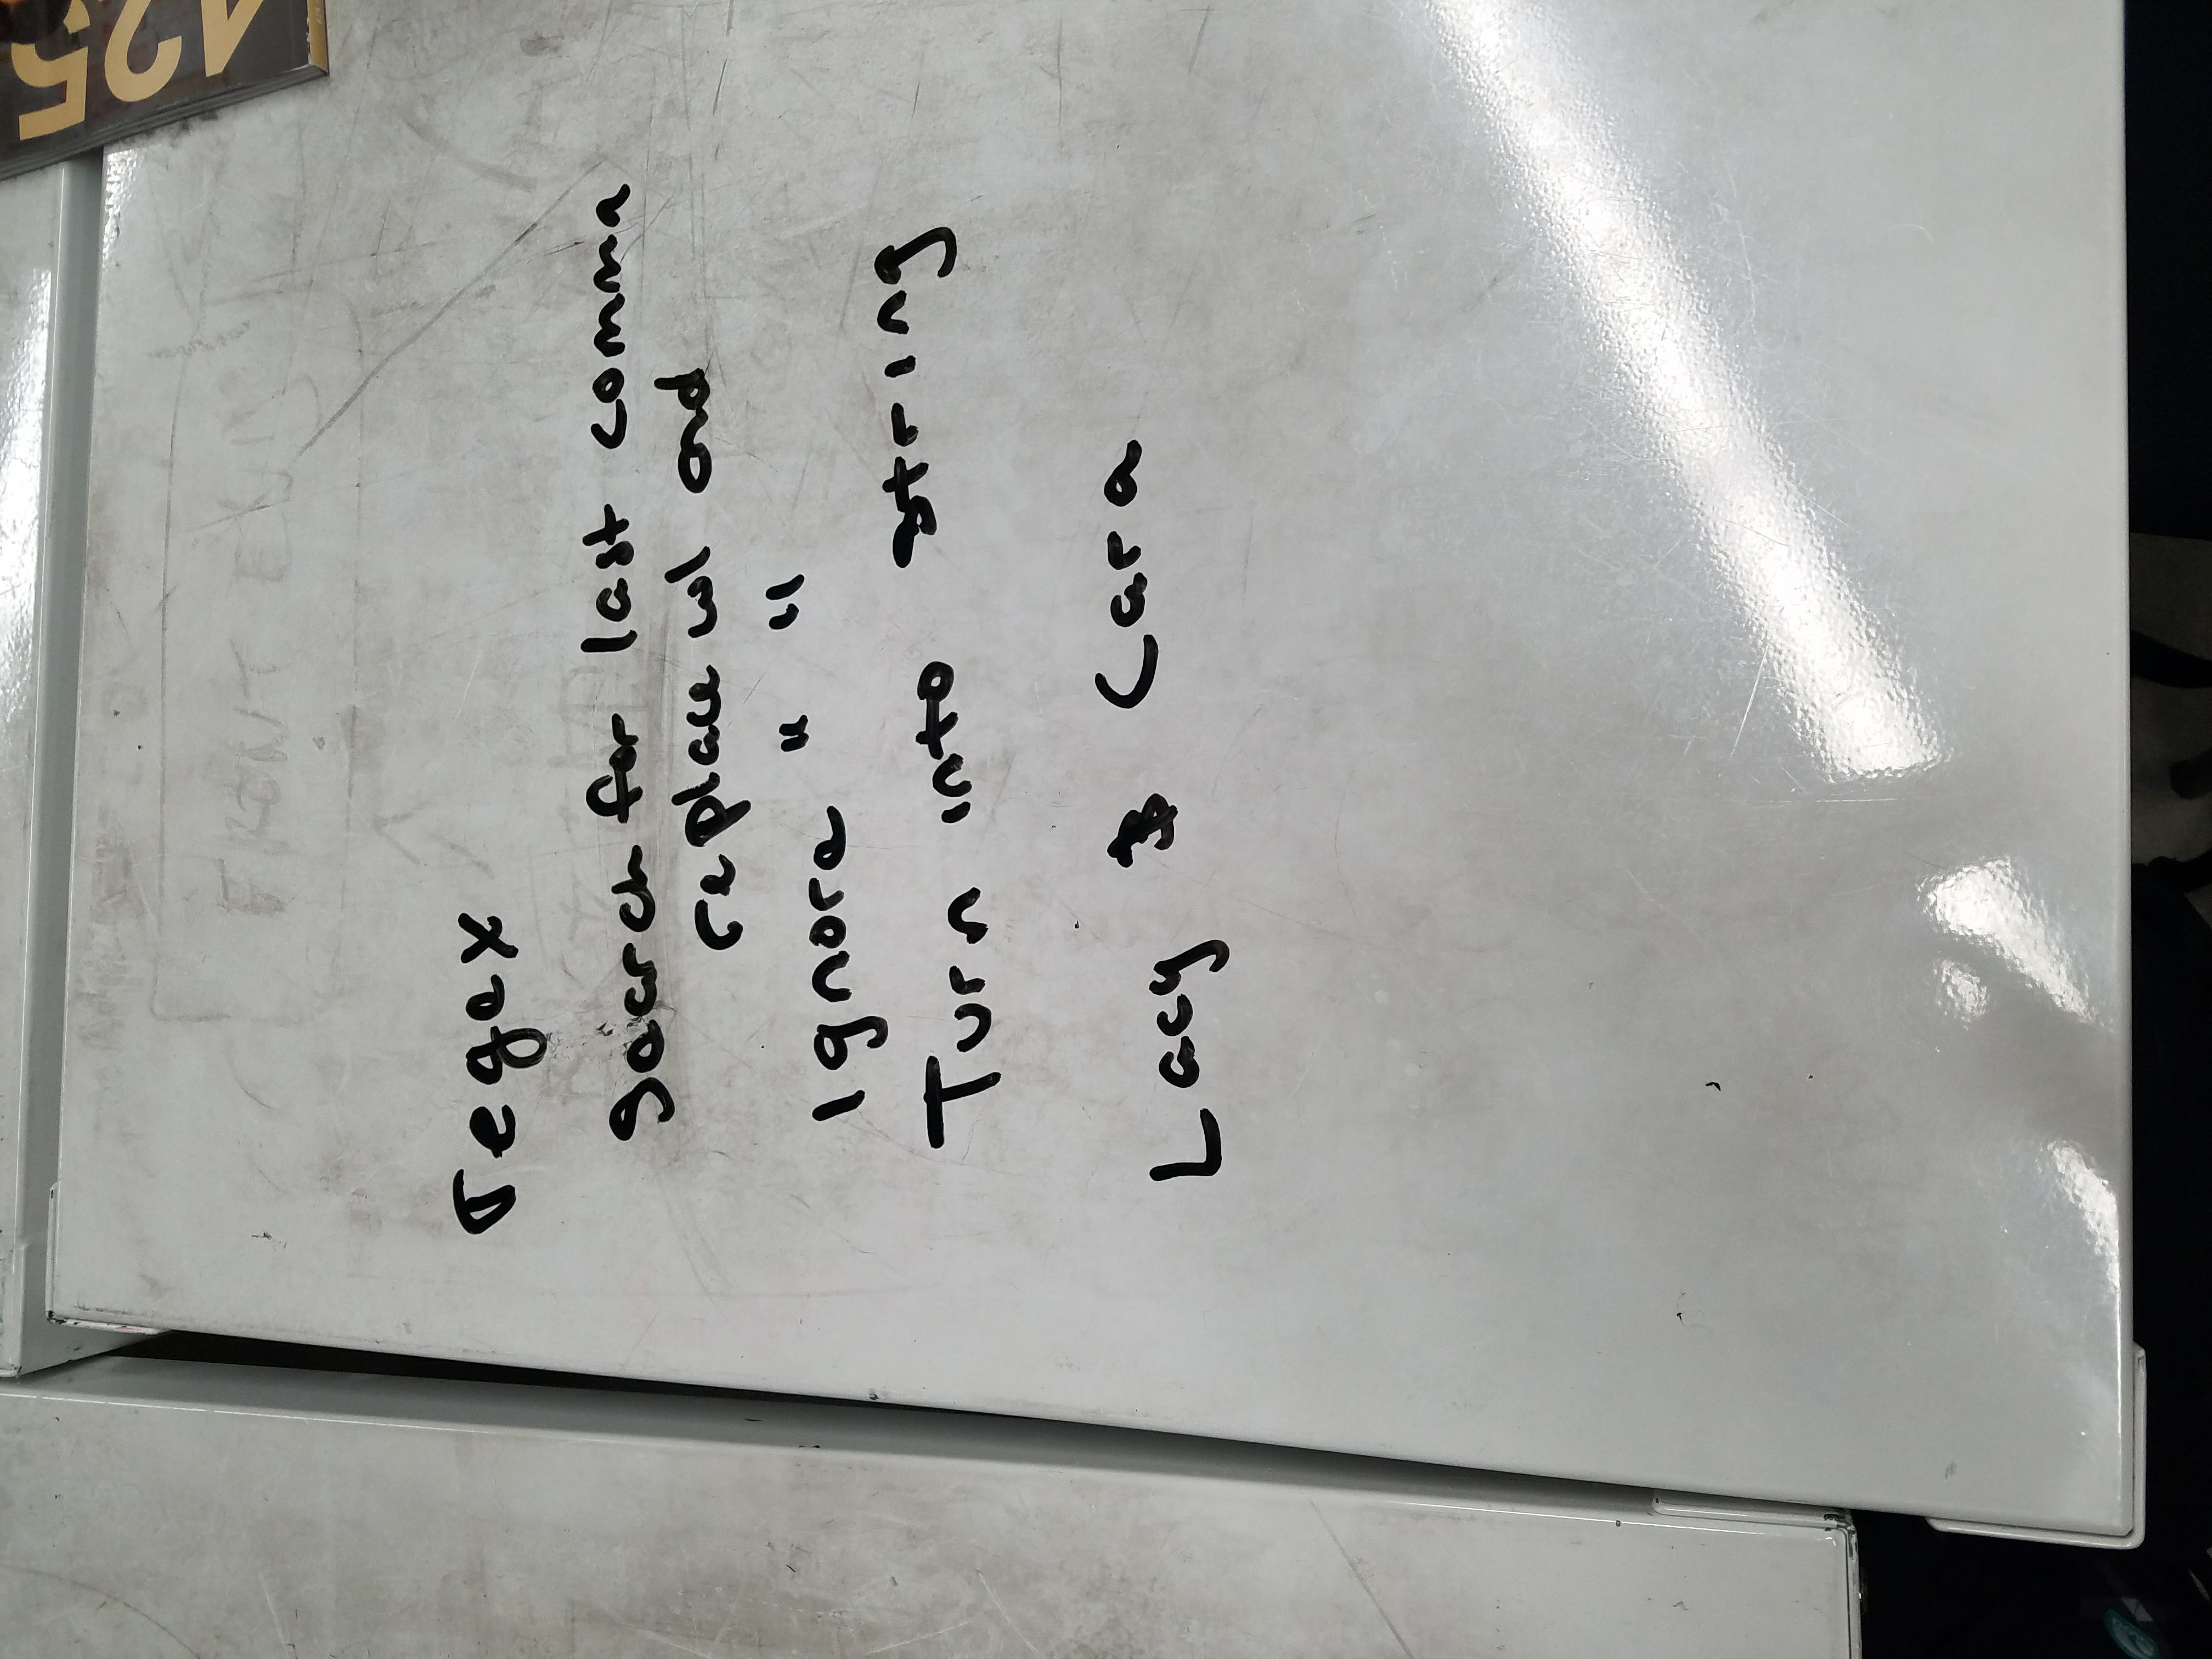 FRONT END
125
regex
Search for last comma
replace w/ and
Ignore " "
Turn into string
Lacy & Cara